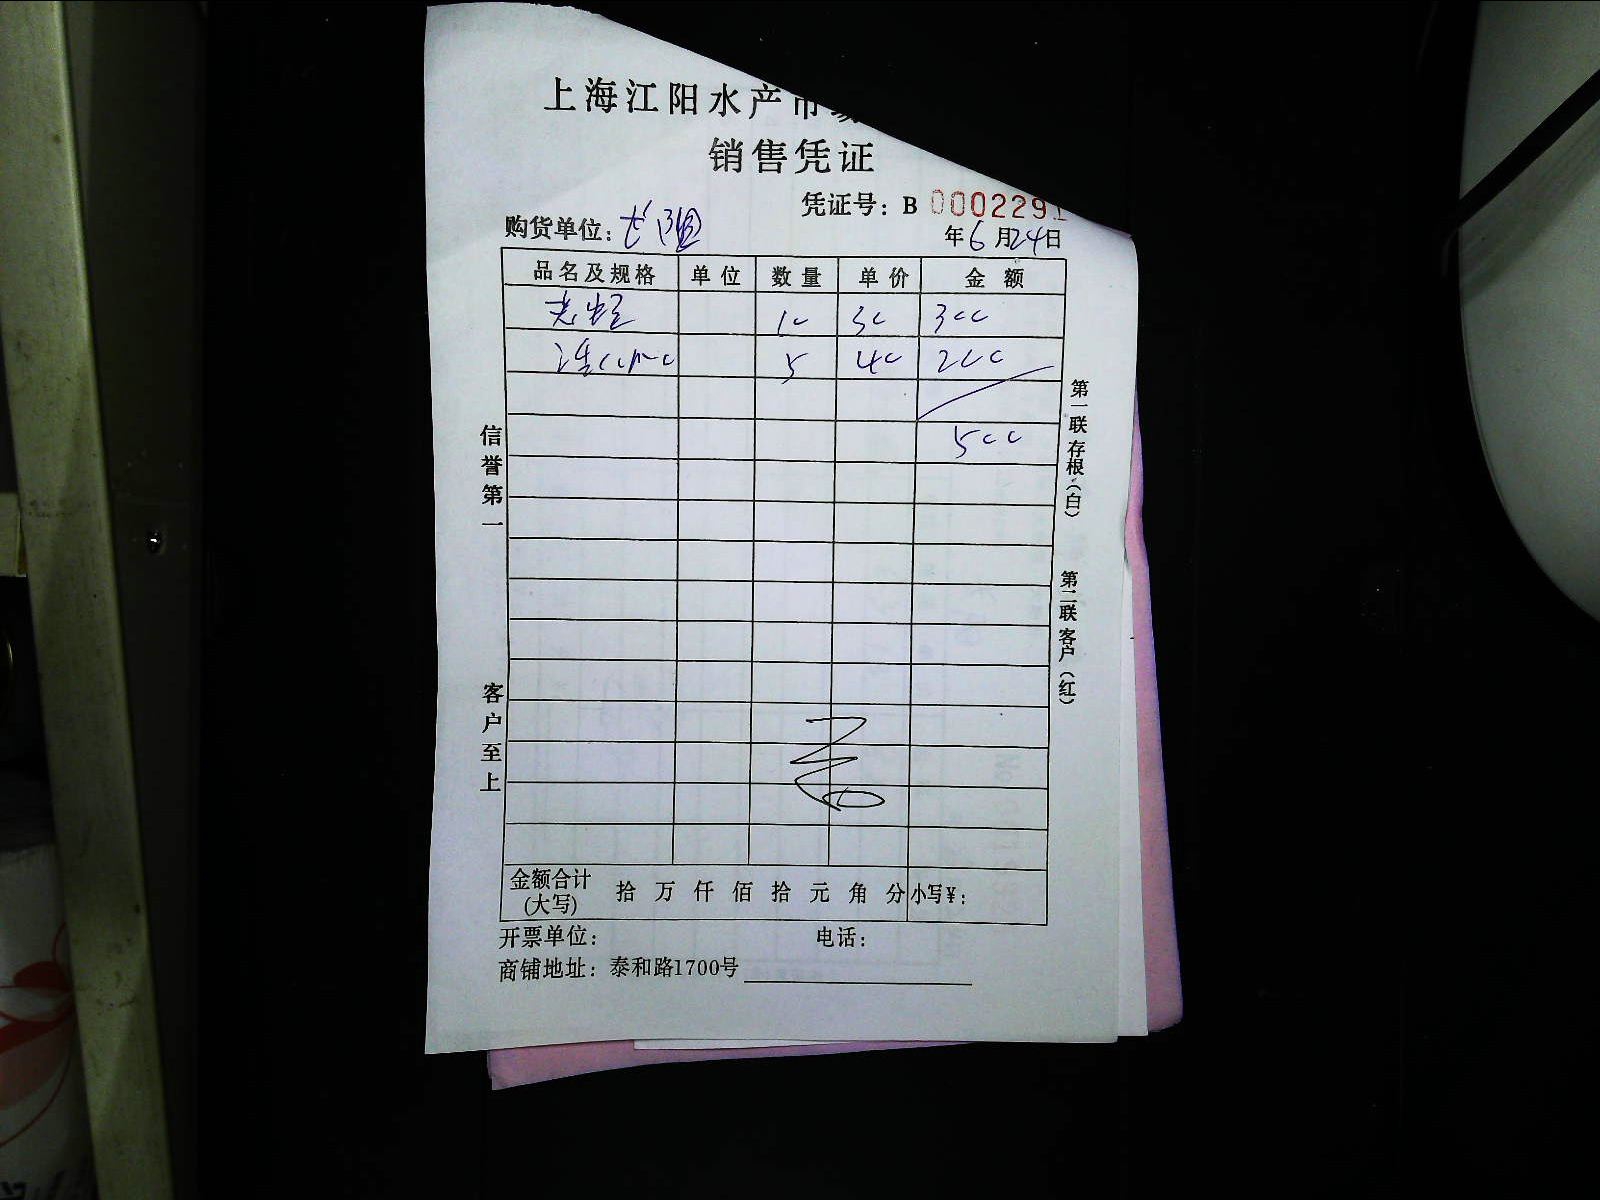 上海江阳水产市场
销售凭证
凭证号：B 0002291
购货单位：
年6月24日
品名及规格 单位 数量 单价 金额
10 30 300
5 40 200
500
信誉第一
客户至上
第一联存根（白）
第二联客户（红）
金额合计(大写) 拾 万 仟 佰 拾 元 角 分 小写¥：
开票单位： 电话：
商铺地址：泰和路1700号